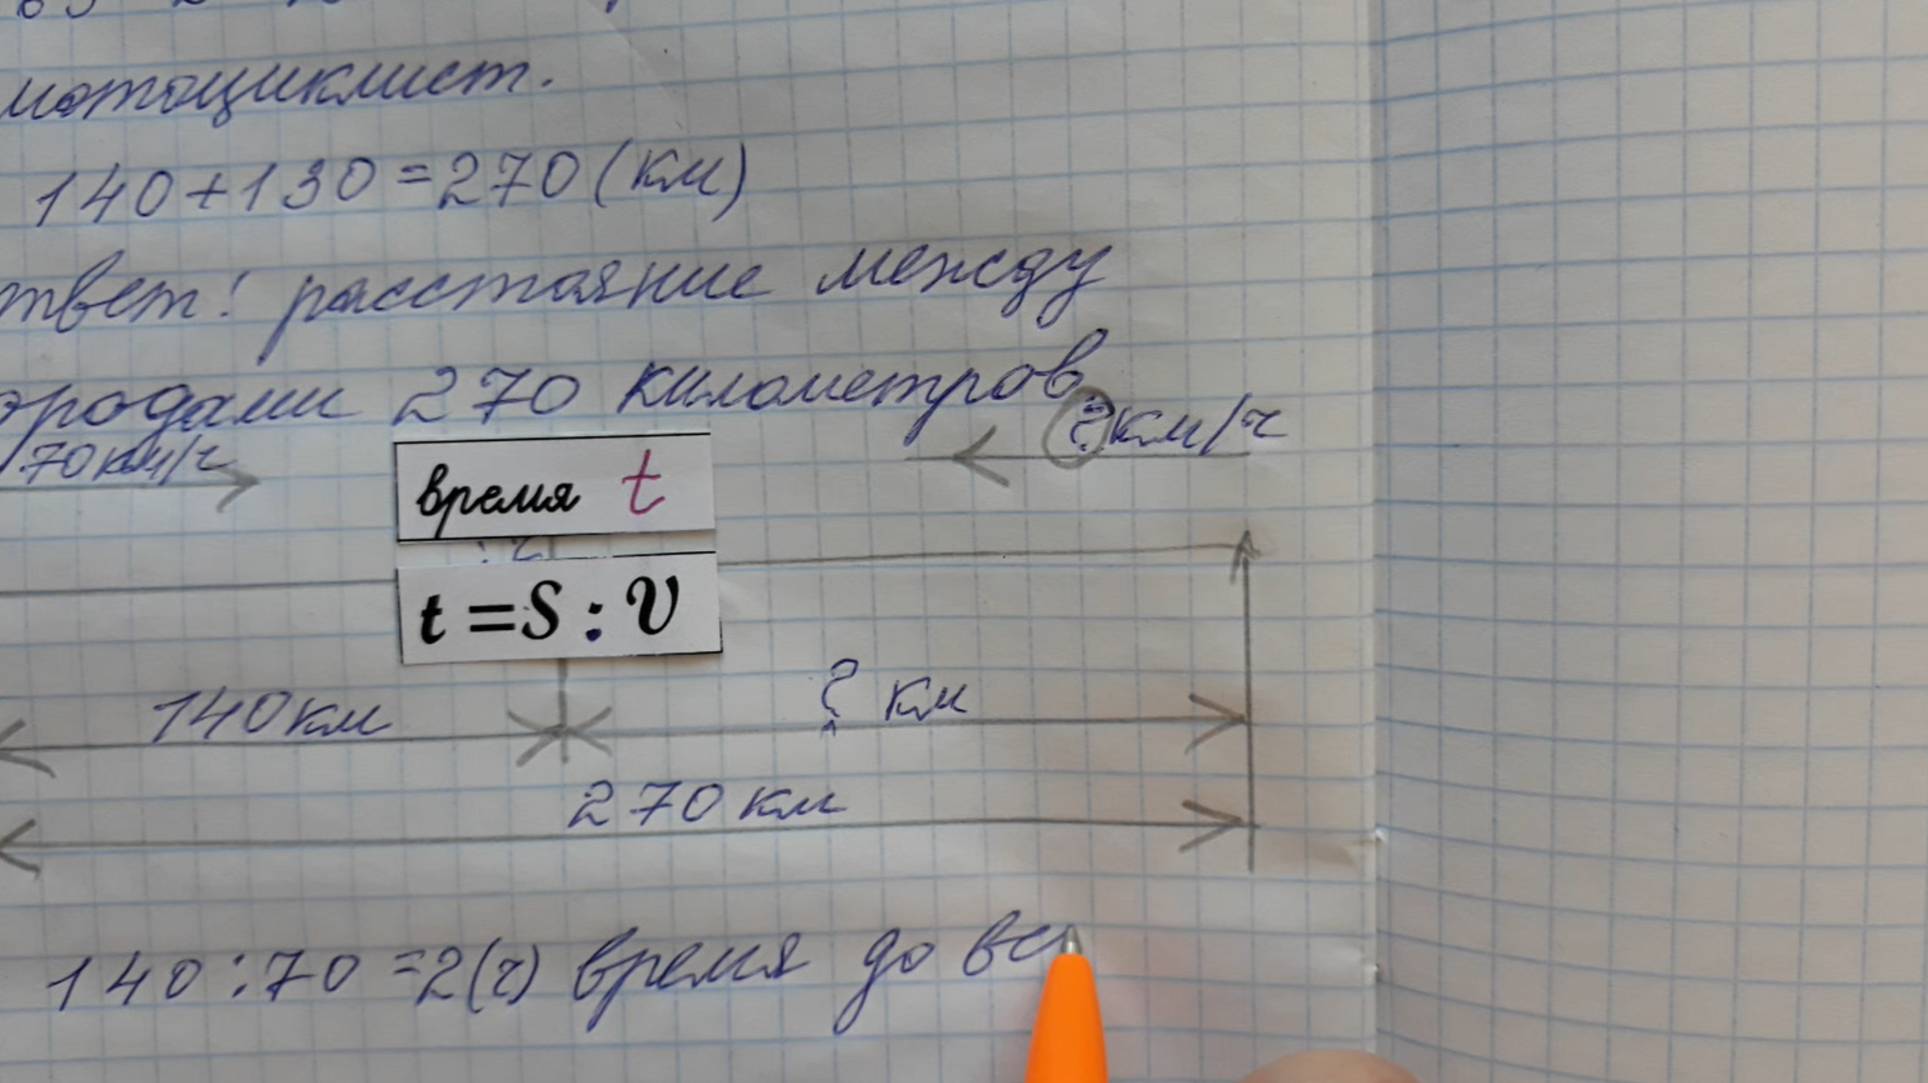 мотоциклист.
140+130=270(км)
твет: расстояние между
родами 270 километров
70км/ч
? км/ч
время t
t=S:V
140км
? км
270 км
140:70=2(ч) время до вс